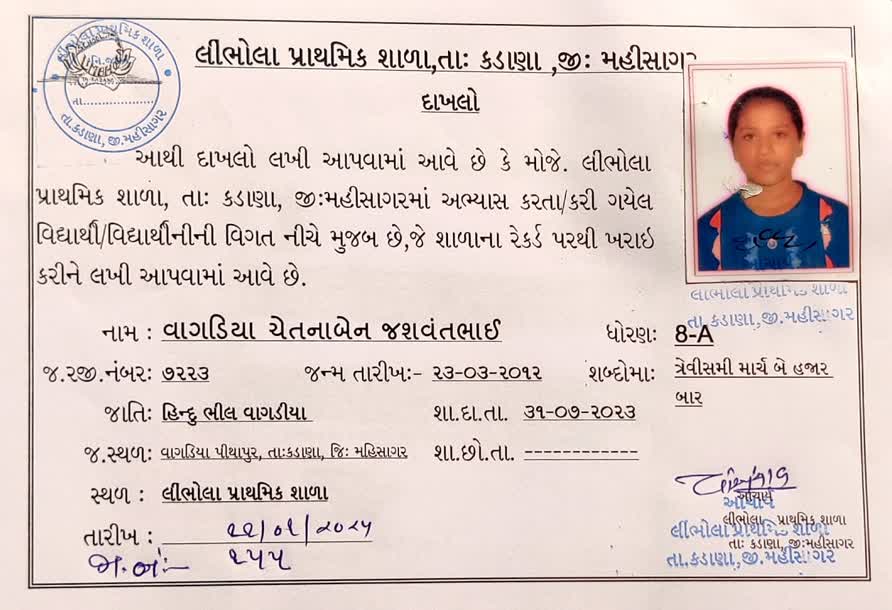 લીંભોલા પ્રાથમિક શાળા
તા.કડાણા, જી.મહીસાગર
તા.
લીંભોલા પ્રાથમિક શાળા,તાઃ કડાણા ,જીઃ મહીસાગર
દાખલો
આથી દાખલો લખી આપવામાં આવે છે કે મોજે. લીંભોલા
પ્રાથમિક શાળા, તાઃ કડાણા, જીઃમહીસાગરમાં અભ્યાસ કરતા/કરી ગયેલ
વિદ્યાર્થી/વિદ્યાર્થીનીની વિગત નીચે મુજબ છે,જે શાળાના રેકર્ડ પરથી ખરાઇ
કરીને લખી આપવામાં આવે છે.
લીંભોલા પ્રાથમિક શાળા
તા.કડાણા,જી.મહીસાગર
નામ : વાગડિયા ચેતનાબેન જશવંતભાઈ ધોરણઃ 8-A
જ.રજી.નંબરઃ ૭૨૨૩ જન્મ તારીખઃ- ૨૩-૦૩-૨૦૧૨ શબ્દોમાઃ ત્રેવીસમી માર્ચ બે હજાર
બાર
જાતિઃ હિન્દુ ભીલ વાગડીયા શા.દા.તા. ૩૧-૦૭-૨૦૨૩
જ.સ્થળઃ વાગડિયા પીથાપુર, તાઃકડાણા, જિઃ મહિસાગર શા.છો.તા. ------------
સ્થળ : લીંભોલા પ્રાથમિક શાળા
આચાર્ય
આચાર્ય
લીંભોલા પ્રાથમિક શાળા
લીંભોલા પ્રાથમિક શાળા
તાઃ કડાણા, જીઃમહીસાગર
તા.કડાણા,જી.મહીસાગર
તારીખ : ૨૨/૦૧/૨૦૨૫
જા.નંઃ- ૨૫૫